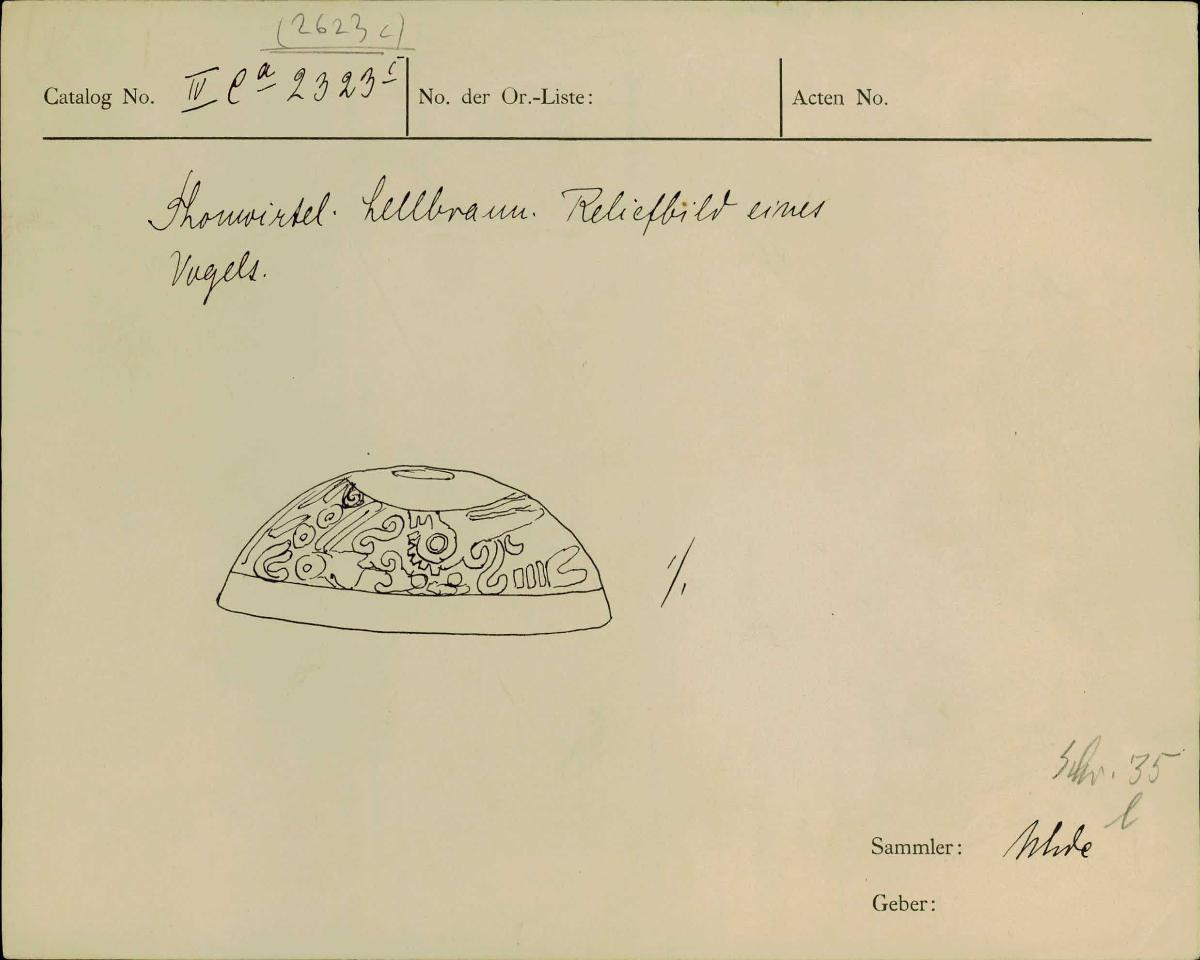 (2623 c)
Catalog No. IV Ca 2323 c
No. der Or.-Liste:
Acten No.
Thonwirtel. hellbraun. Reliefbild eines
Vogels.
1/1
Schr. 35
l
Sammler: Uhde
Geber: